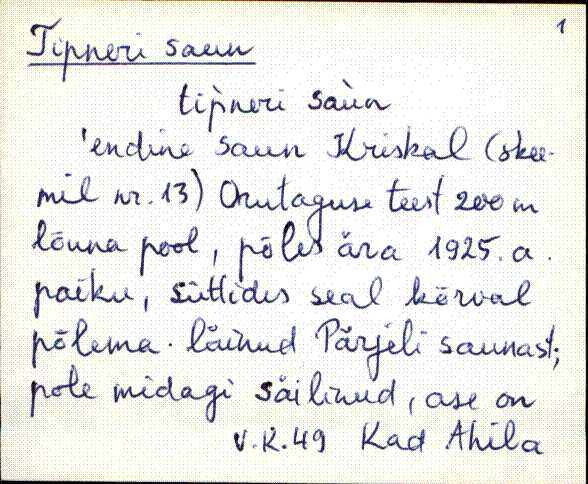 1
Tipneri saun
tip̀neri saùn
'endine saun Kriskal (skee-
mil nr. 13) Orutaguse teest 200 m
lõuna pool, põles ära 1925. a.
paiku, süttides seal kõrval
põlema läinud Pärjeli saunast;
pole midagi säilinud, ase on
V.K.49 Kad Ahila